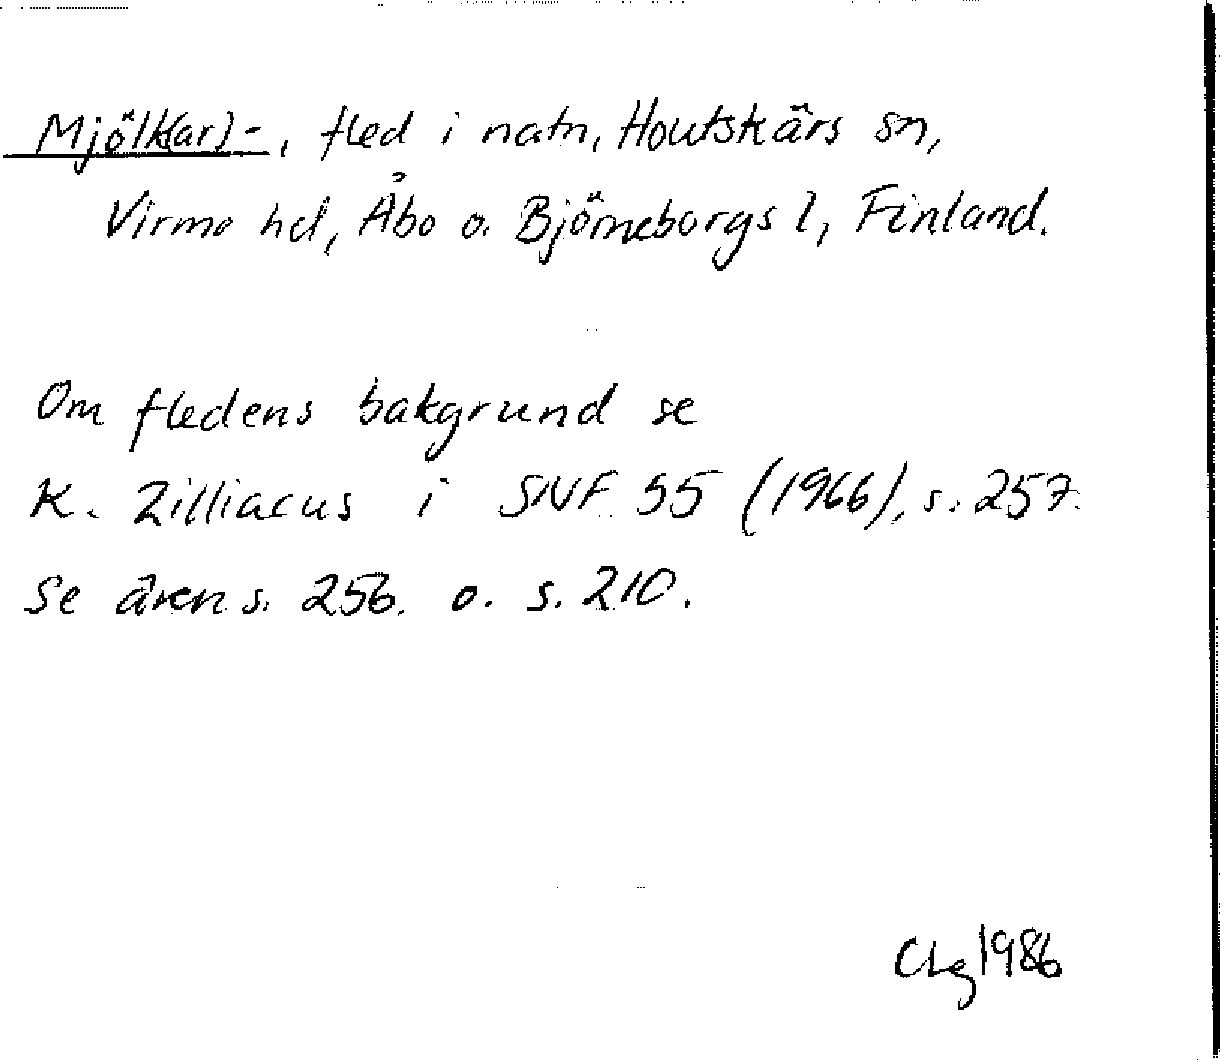 Mjölk(ar)-, fled i natn, Houtskärs sn,
Virmo hd, Åbo o. Björneborgs l, Finland.
Om fledens bakgrund se
K. Zilliacus i SNF 55 (1966), s. 257.
Se även s. 256. o. s. 210.
CLg 1986